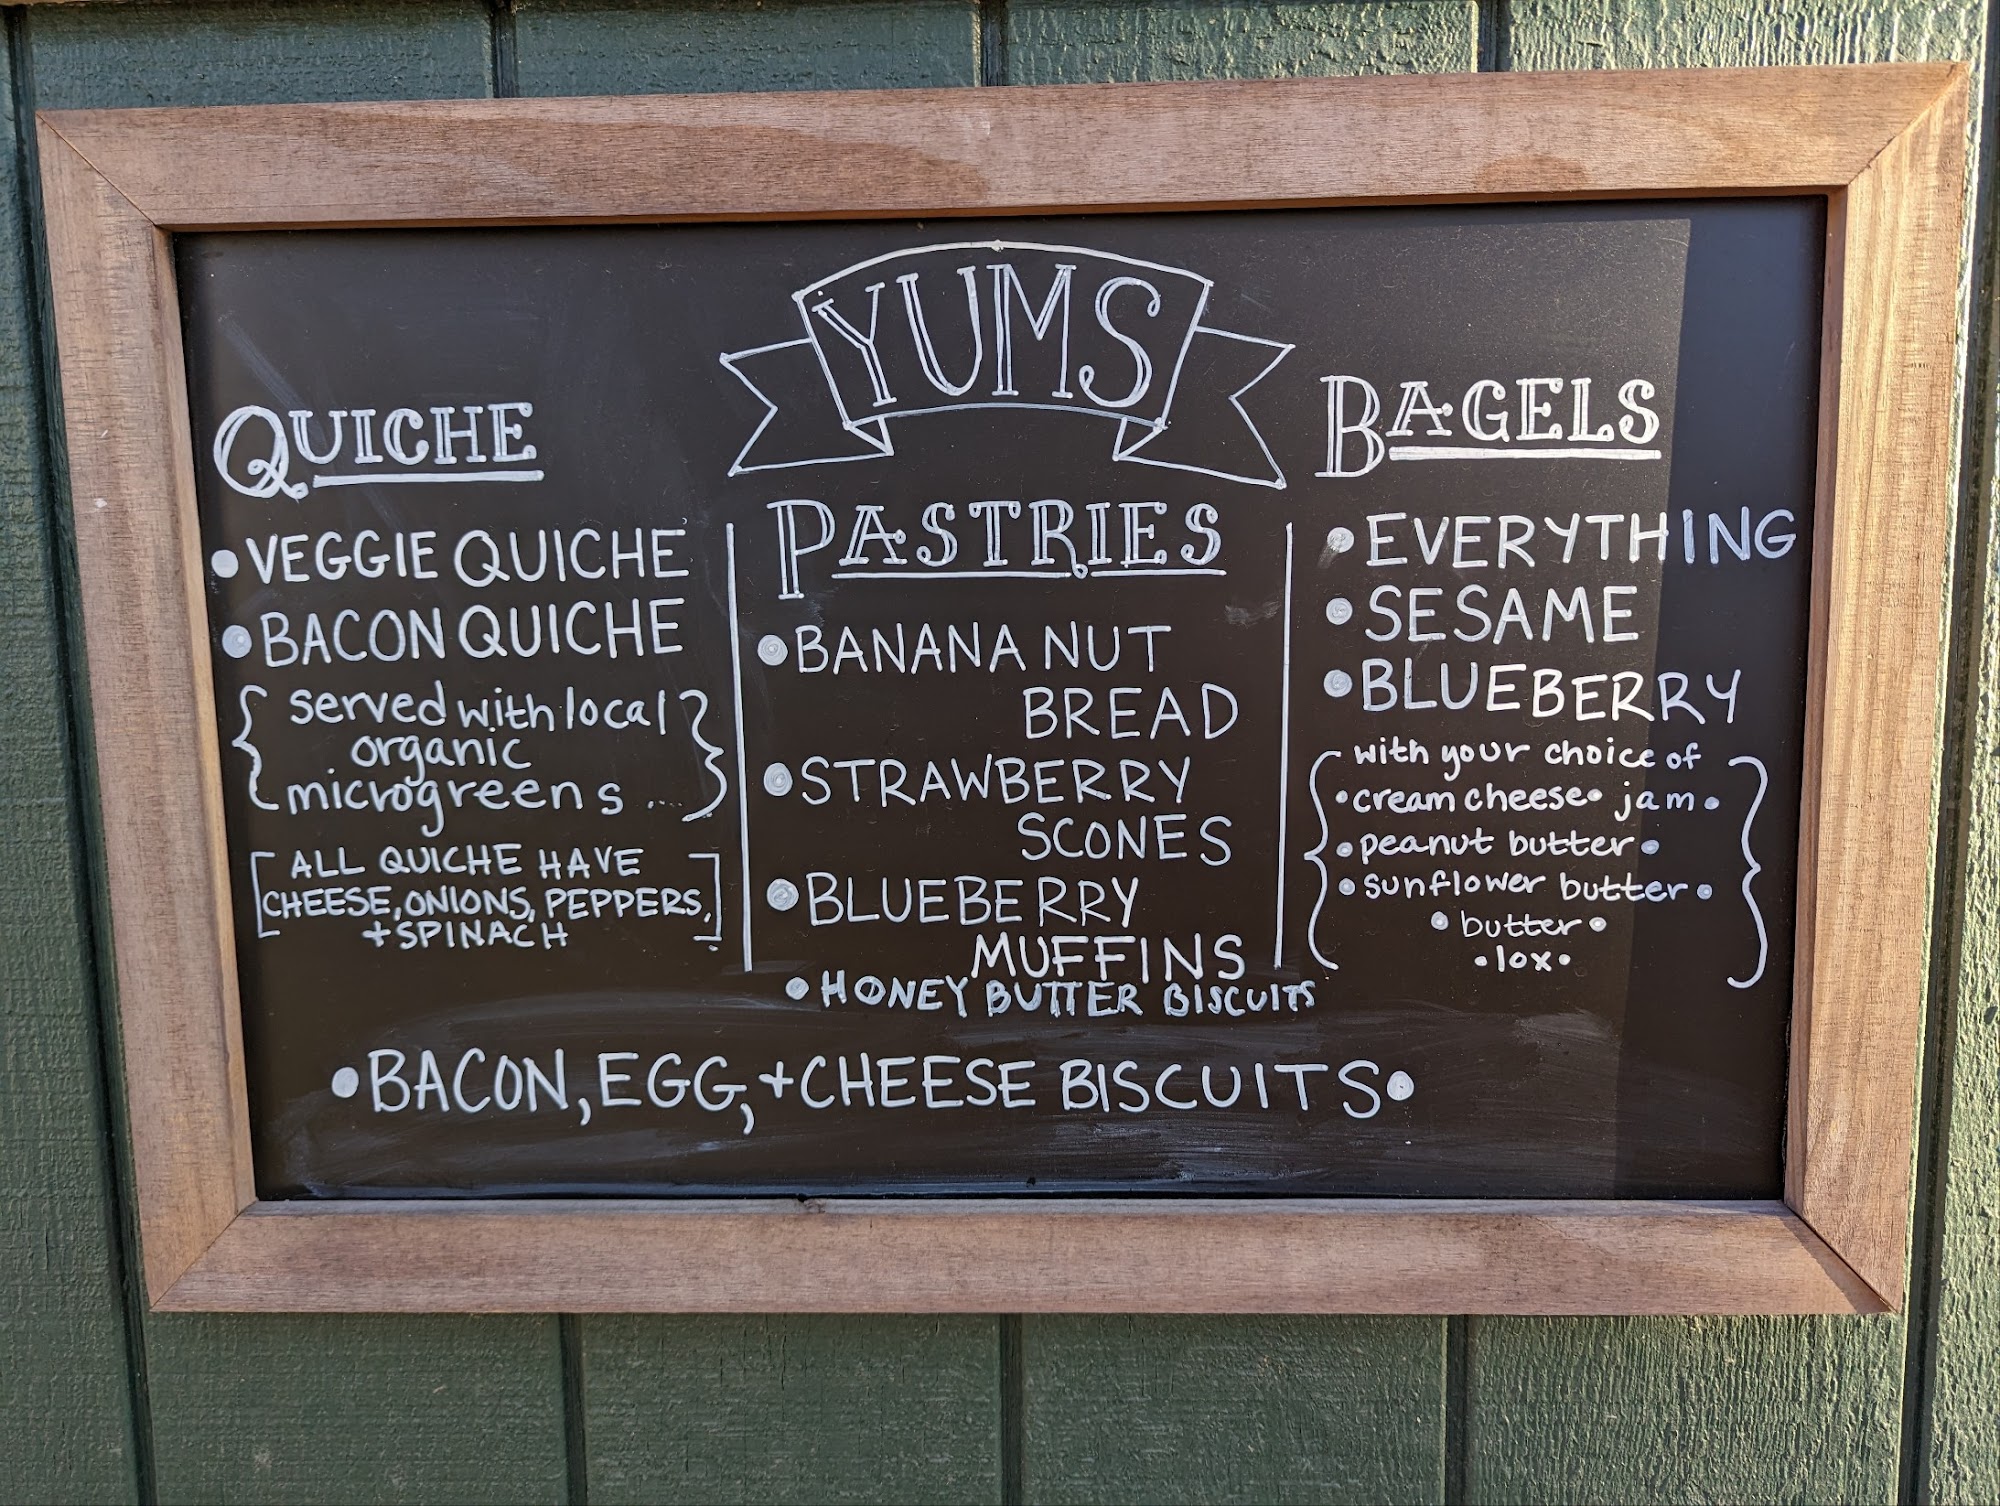 YUMS
QUICHE
• VEGGIE QUICHE
• BACON QUICHE
{ served with local }
organic
microgreens ...
[ ALL QUICHE HAVE ]
CHEESE, ONIONS, PEPPERS,
+ SPINACH
PASTRIES
• BANANA NUT
BREAD
• STRAWBERRY
SCONES
• BLUEBERRY
MUFFINS
• HONEY BUTTER BISCUITS
BAGELS
• EVERYTHING
• SESAME
• BLUEBERRY
{ with your choice of }
• cream cheese • jam •
• peanut butter •
• sunflower butter •
• butter •
• lox •
• BACON, EGG, + CHEESE BISCUITS •